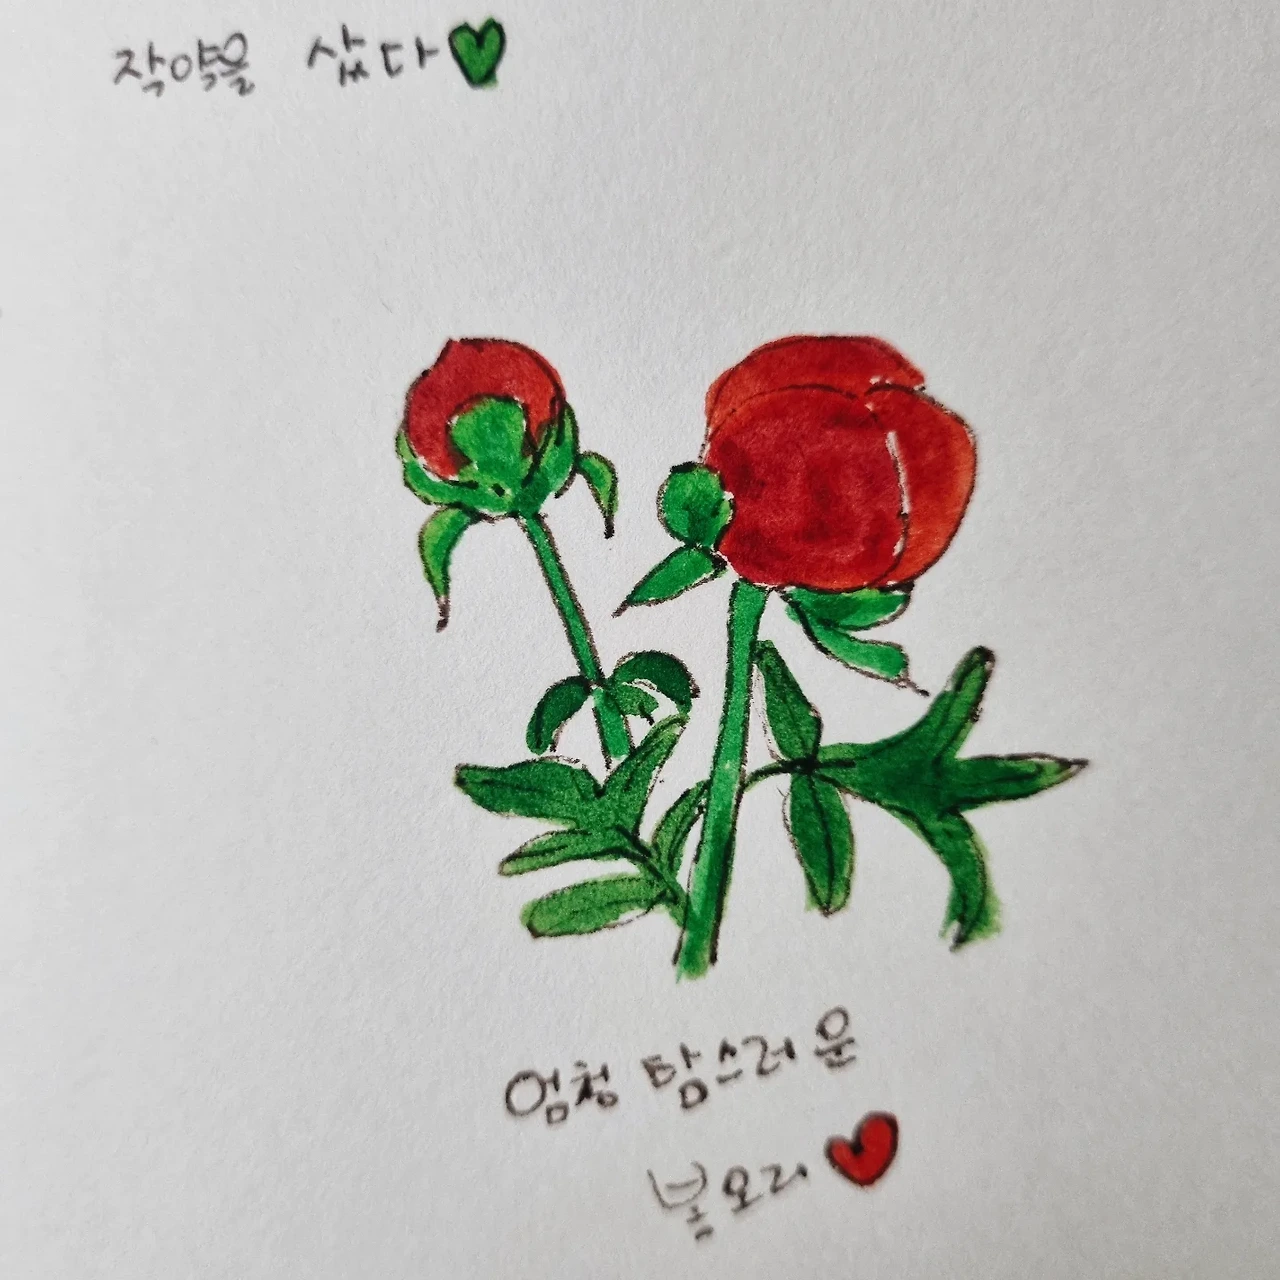 작약을 샀다
엄청 탐스러운
봉오리